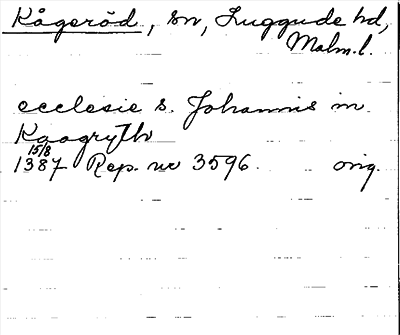 Kågeröd, sn, Luggude hd,
Malm.l.
ecclesie s. Johannis in
Kaagryth
15/8
1387 Rep. nr 3596. orig.